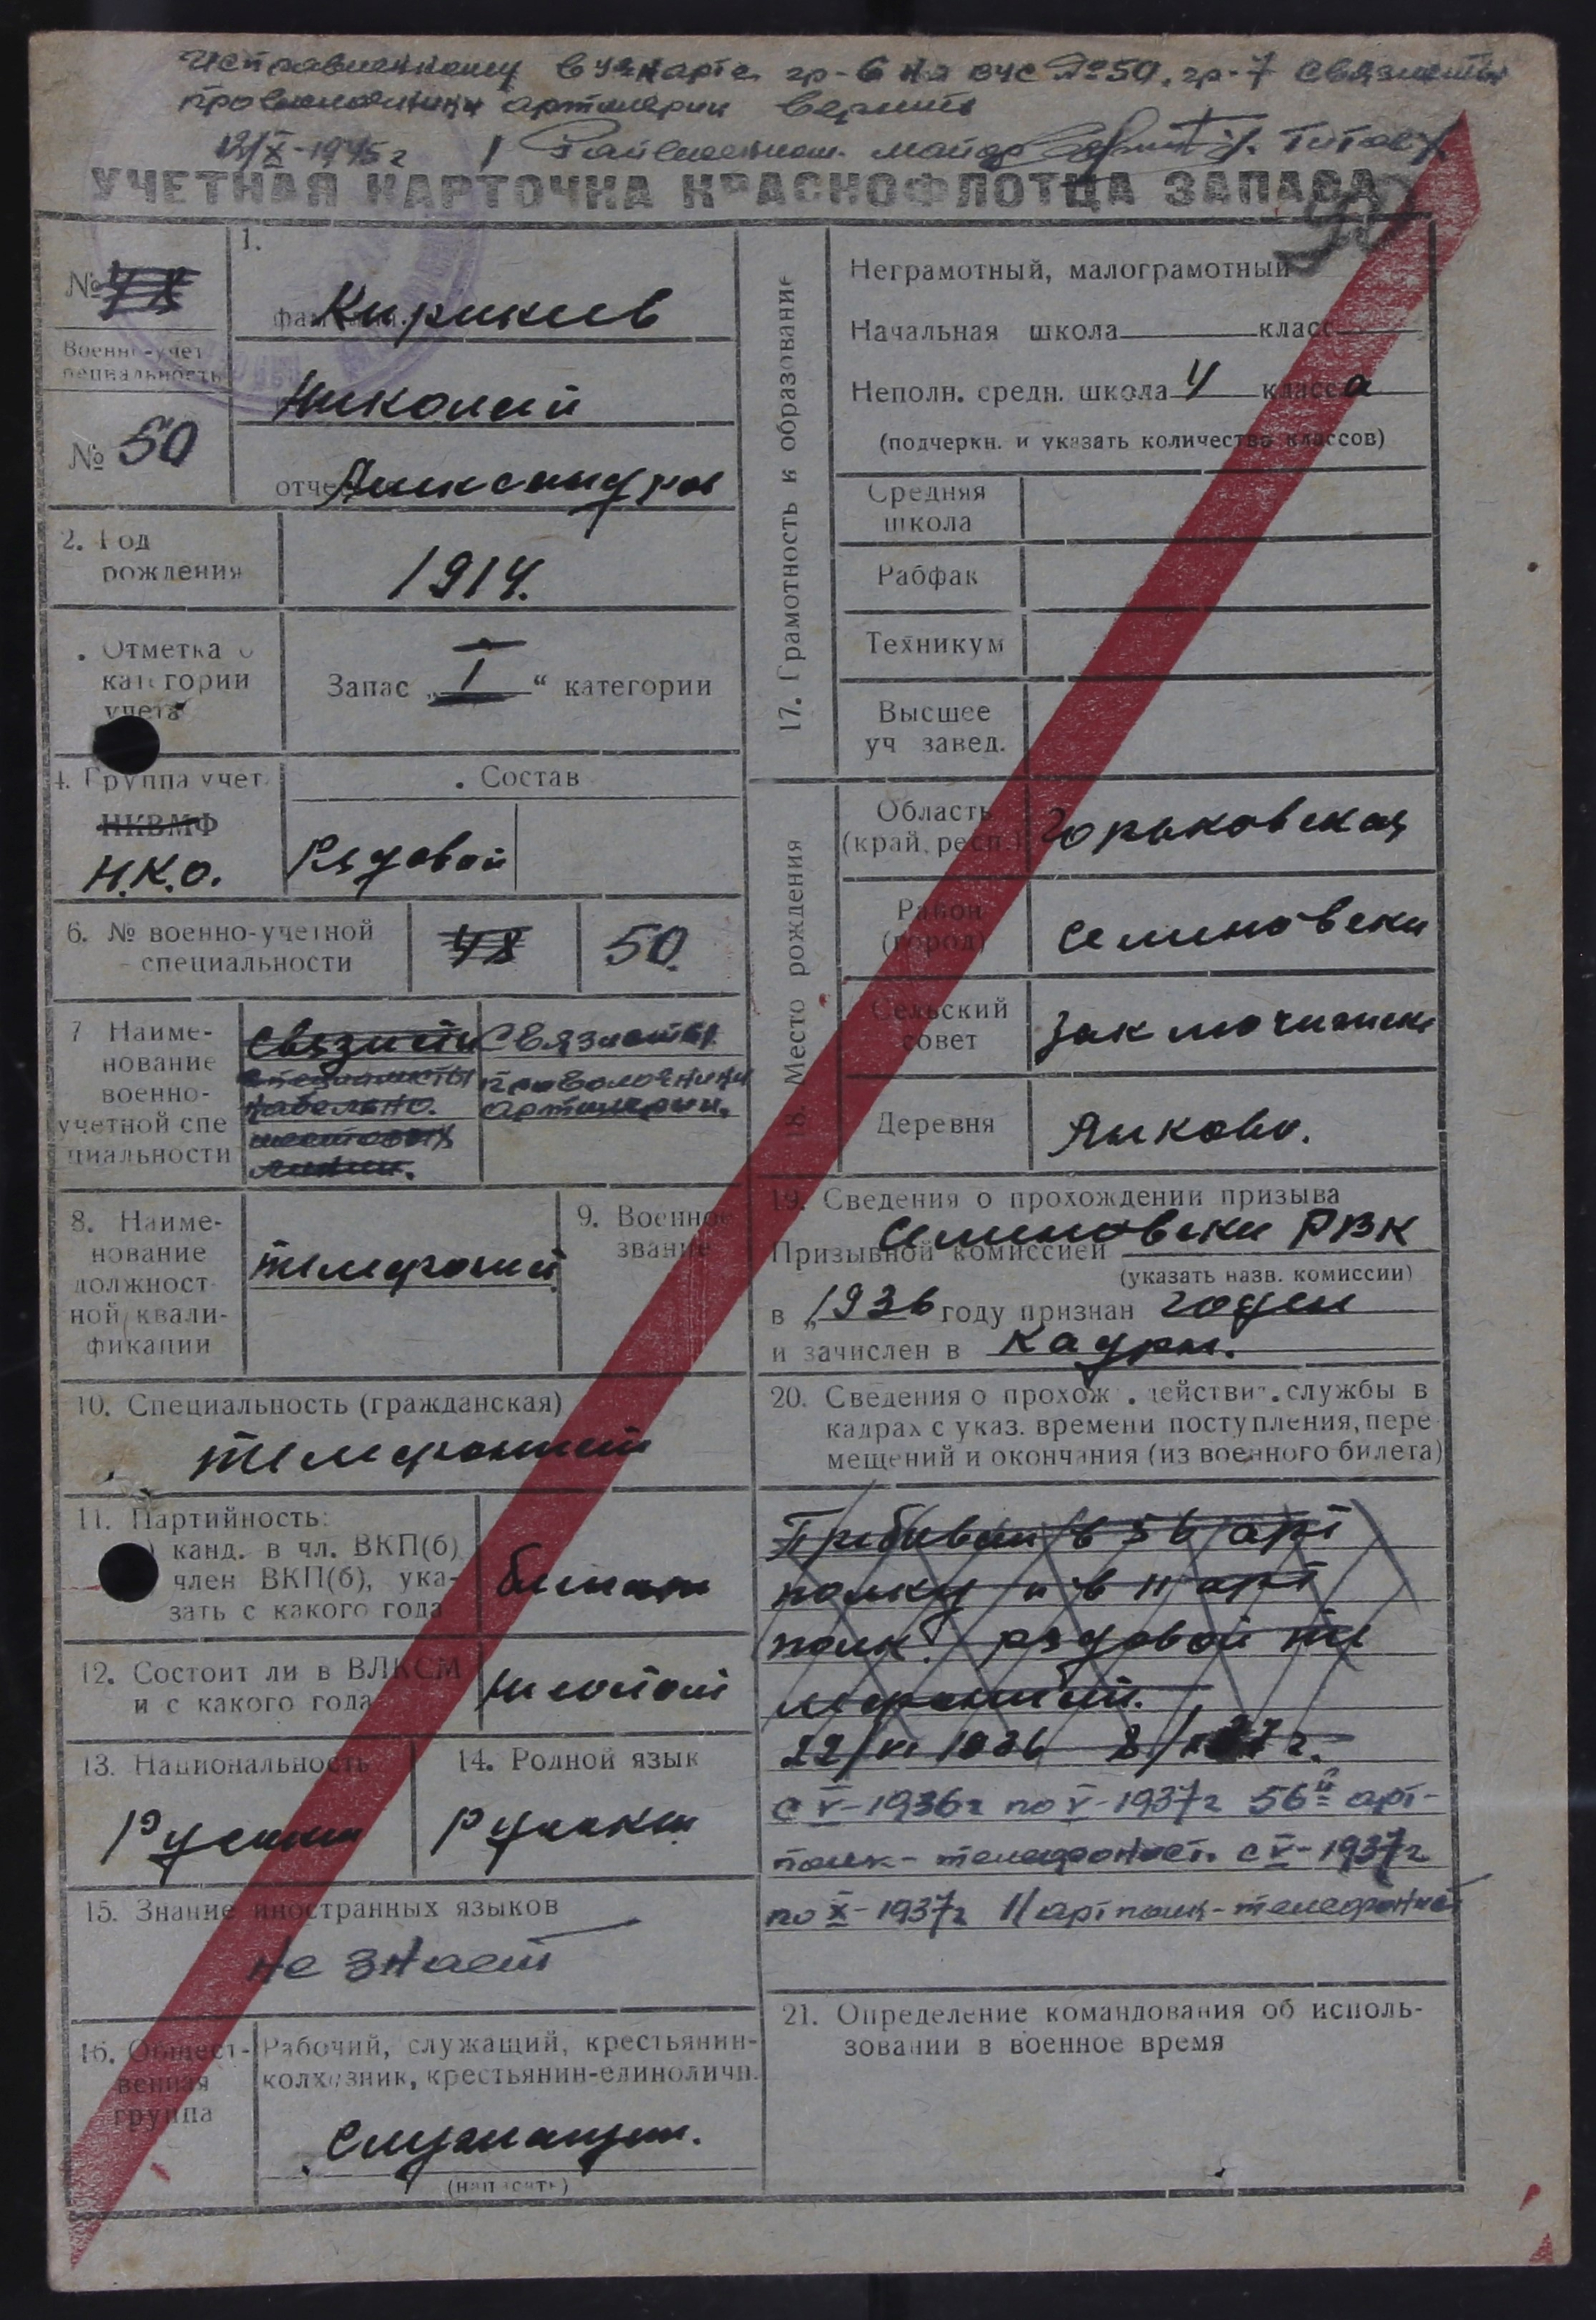 Исправленному в уч карте гр-6 на вус №50, гр-7 связисты
проволочники артиллерии верить
12/X-1945 г Райвоенком. майор /Титов/
УЧЕТНАЯ КАРТОЧКА КРАСНОФЛОТЦА ЗАПАСА
№ 48
Военно-учет
специальность
№ 50
1.
Кирикиев
Николай
отчество Александров
2. Год
рождения
1914.
Отметка о
категории
учета
Запас „I“ категории
4. Группа учет.
НКВМФ
Н.К.О.
Состав
Рядовой
6. № военно-учетной
специальности
48
50.
7 Наиме-
нование
военно-
учетной спе
циальности
Связисты
специалисты
кабельно.
шестовых
линии.
Связисты
проволочники
артиллерии.
8. Наиме-
нование
должност-
ной квали-
фикации
телефонист
9. Военное
звание
10. Специальность (гражданская)
телефонист
11. Партийность:
канд. в чл. ВКП(б)
член ВКП(б), ука-
зать с какого года
12. Состоит ли в ВЛКСМ
и с какого года
не состоит
13. Национальность
Русский
14. Родной язык
Русский
15. Знание иностранных языков
не знает
16. Общест-
венная
группа
Рабочий, служащий, крестьянин-
колхозник, крестьянин-единоличн.
Служащий.
(написать)
17. Грамотность и образование
Неграмотный, малограмотный
Начальная школа класс
Неполн. средн. школа 4 класса
(подчеркн. и указать количество классов)
Средняя
школа
Рабфак
Техникум
Высшее
уч завед.
18. Место рождения
Область
(край, респ.)
Горьковская
Район
(город)
Семеновски
Сельский
совет
Деревня
Яшково.
19. Сведения о прохождении призыва
Призывной комиссией Семеновски РВК
(указать назв. комиссии)
в „1936 году признан годен
и зачислен в кадры.
20. Сведения о прохож. действит. службы в
кадрах с указ. времени поступления, пере
мещений и окончания (из военного билета)
Пребывал в 56 арт
полку и в 11 арт
полк. рядовой те
лефонист.
с V-1936г по V-1937г 56й арт-
полк-телефонист. с V-1937г
по X-1937г 11 арт полк-телефонист
21. Определение командования об исполь-
зовании в военное время